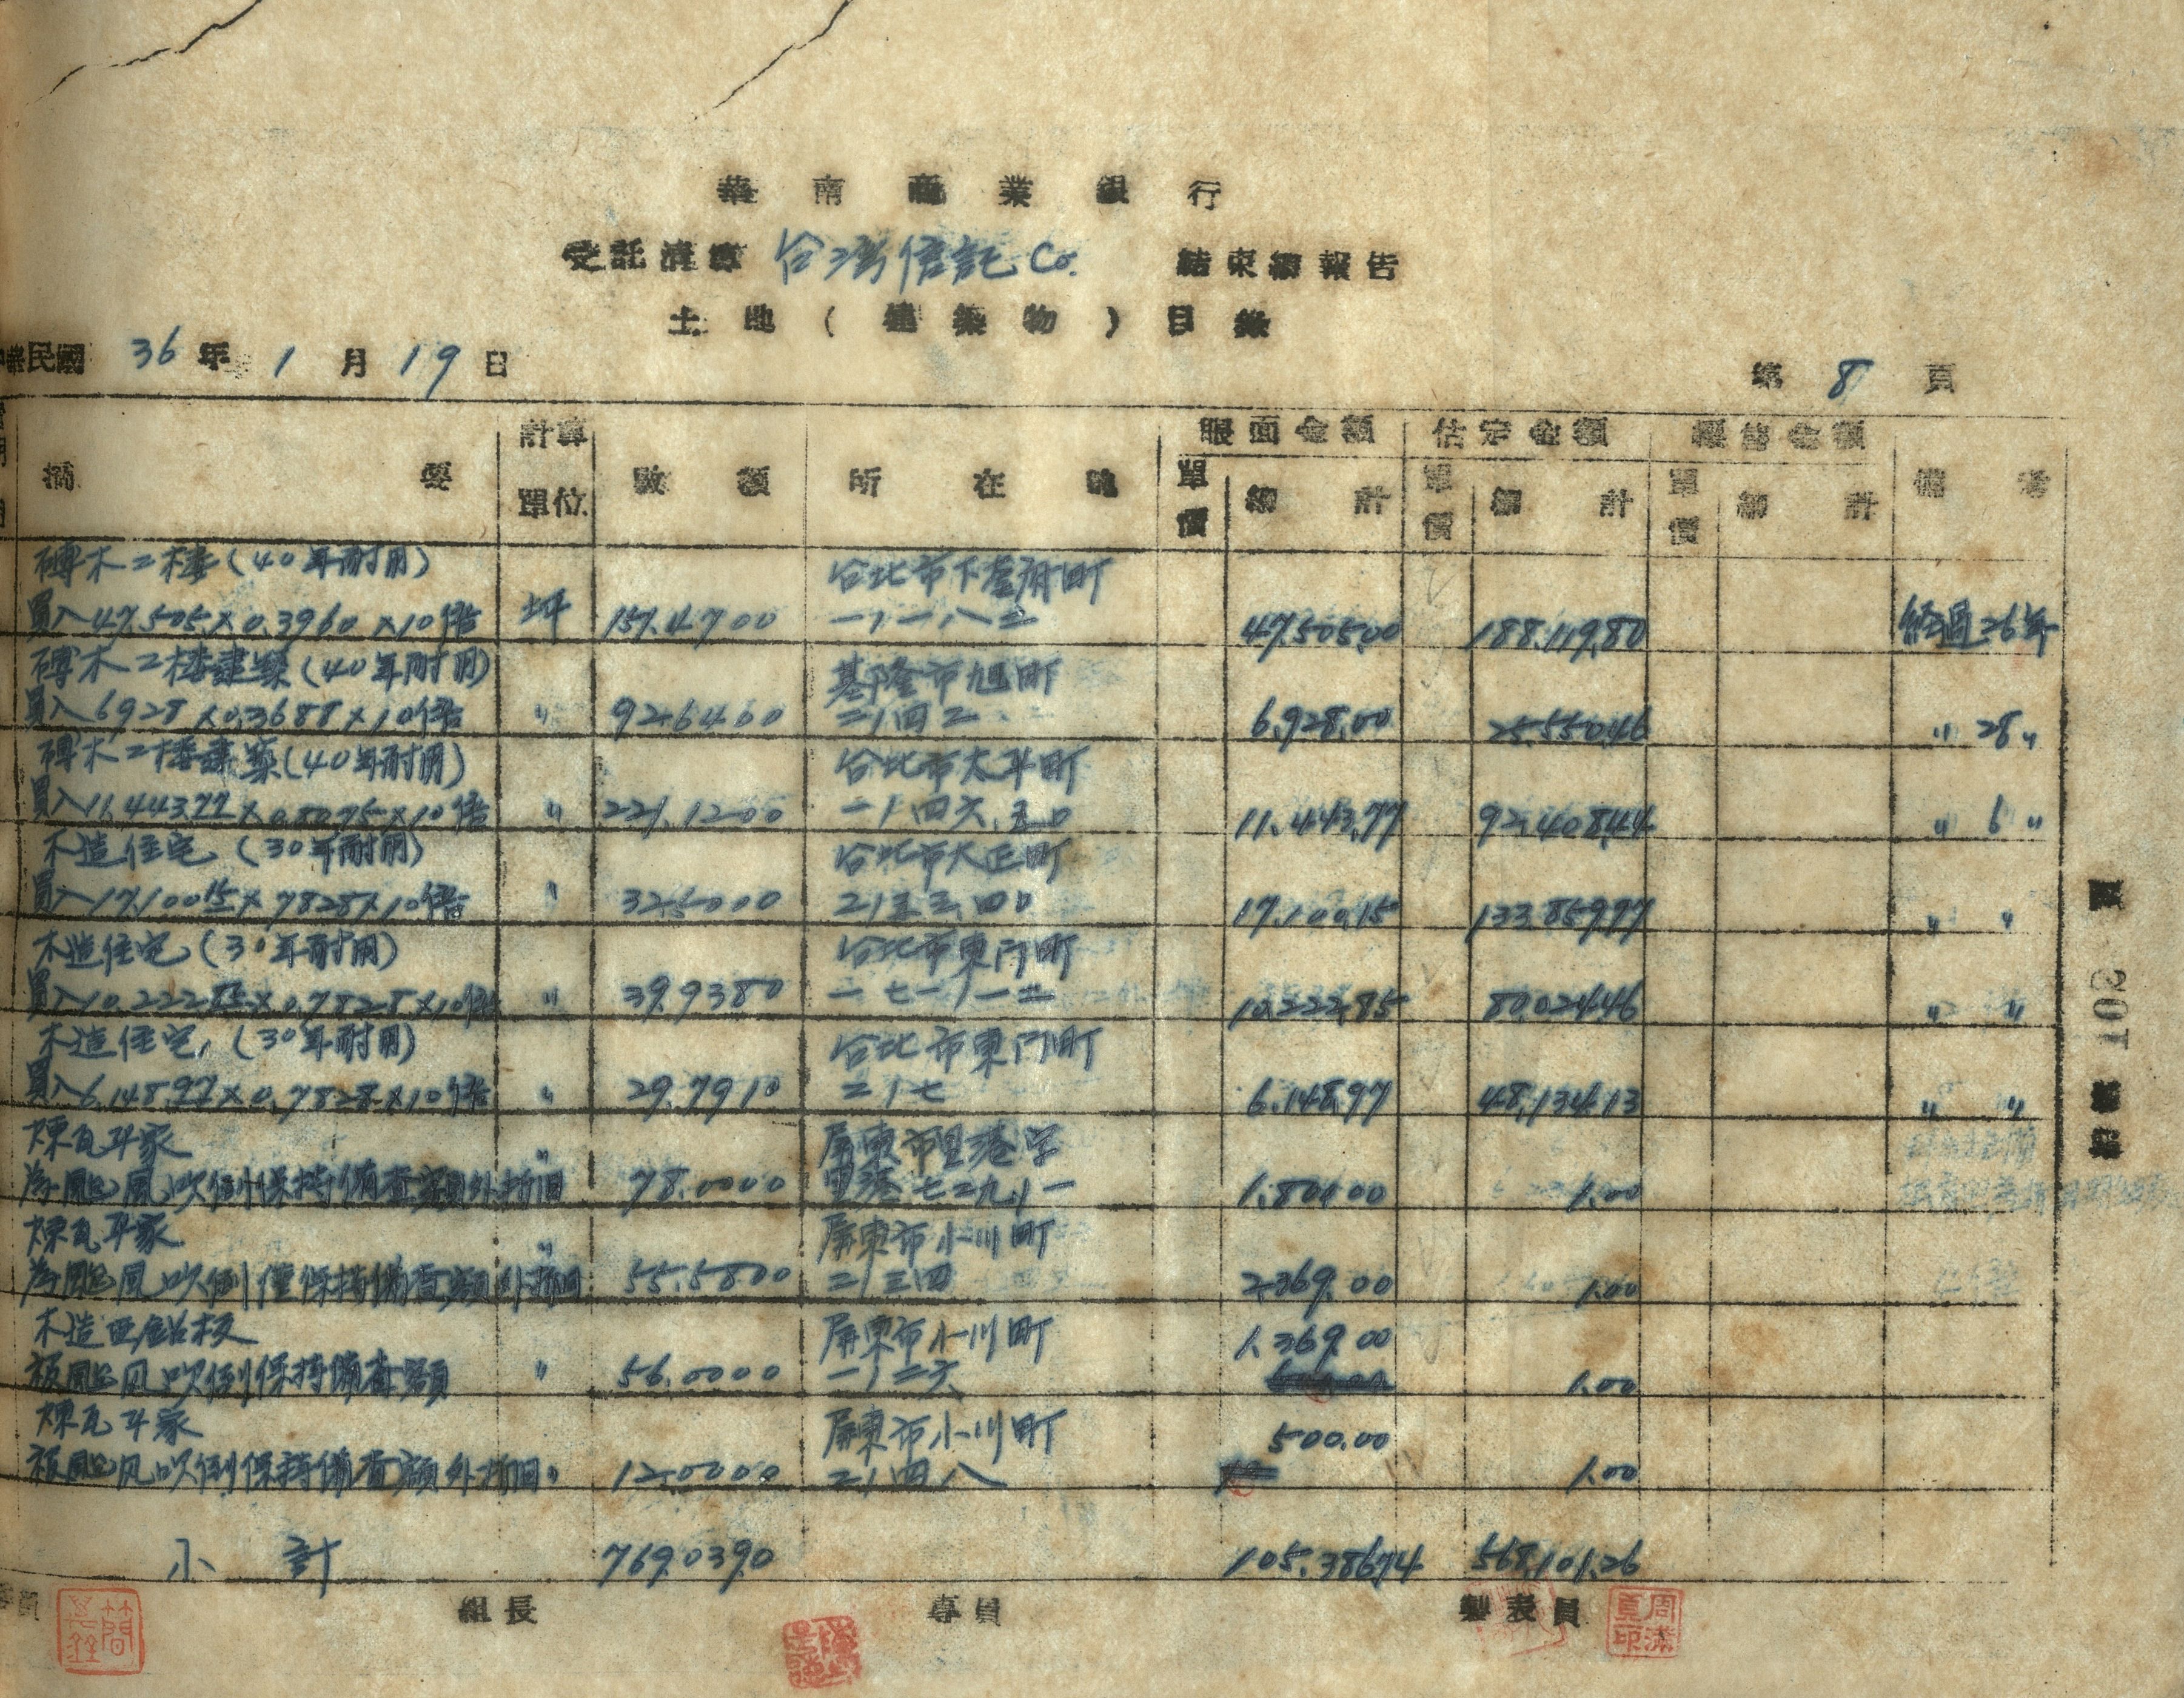 華南商業銀行
受託清算 台湾信託Co. 結束總報告
土地(建築物)目錄
中華民國 36年 1月 19日
第 8 頁
摘要 計算單位 數額 所在地 賬面金額 單價 總計 估定金額 單價 總計 單價 總計 備考
磚木二樓(40年耐用) 台北市下奎府町
買入47.505×0.3960×10倍 坪 157.4700 一,一八二 47,505.00 188,119.80 經過26年
磚木二樓建築(40年耐用) 基隆市旭町
買入6928×0.3688×10倍 〃 92.6460 二,四二 6,928.00 25,550.46 〃 28〃
磚木二樓建築(40年耐用) 台北市太平町
買入11,443.77×0.8075×10倍 〃 221.1200 一,四六.五〇 11,443.77 92,408.44 〃 6〃
木造住宅(30年耐用) 台北市大正町
買入17,100.15×7828×10倍 〃 32.5000 二,三五.四〇 17,100.15 133,859.97 〃 〃
木造住宅(30年耐用) 台北市東門町
買入10,222.85×0.7828×10倍 〃 39.9380 一七一,一二 10,222.85 80,024.46 〃 〃
木造住宅,(30年耐用) 台北市東門町
買入6,148.97×0.7828×10倍 〃 29.7910 二,七 6,148.97 48,134.13 〃 〃
煉瓦平家 〃 屏東市里港字
為颱風吹倒保持備查額外折旧 78.0000 里港七二九,一 1,801.00 1.00
煉瓦平家 〃 屏東市小川町
為颱風吹倒僅保持備查額外折旧 55.5800 二,三四 2,369.00 1.00
木造亜鉛板 屏東市小川町 1,369.00
被颱风吹倒保持備査額 〃 56.0000 一,二六 1.00
煉瓦平家 屏東市小川町 500.00
被颱风吹倒保持備查額外折旧〃 12.0000 二,四八 1.00
小計 769.0390 105,386.74 568,101.26
組長 專員 製表員
周滿夏印
頁 201 總號